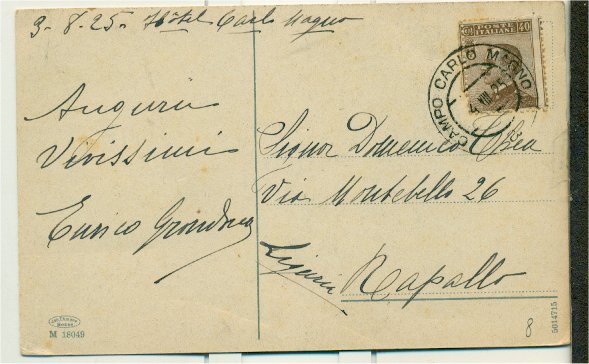 3-8-25. Hôtel Carlo Magno
Auguri
Vivissimi
Enrico Grondona
POSTE ITALIANE
40
CAMPO CARLO MAGNO
4 VIII 25
Signor Domenico Chea
Via Montebello 26
Liguria
Rapallo
M 18049
5014715
8